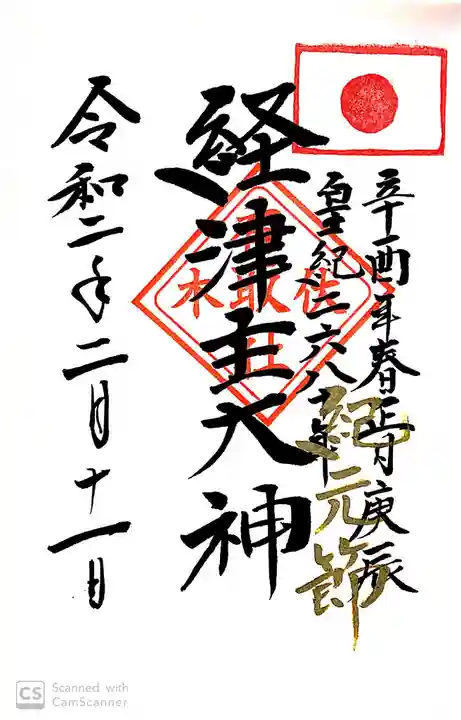 辛酉年春正月庚辰
皇紀二六八
紀元節
経津主大神
令和二年二月十一日
CS Scanned with
CamScanner